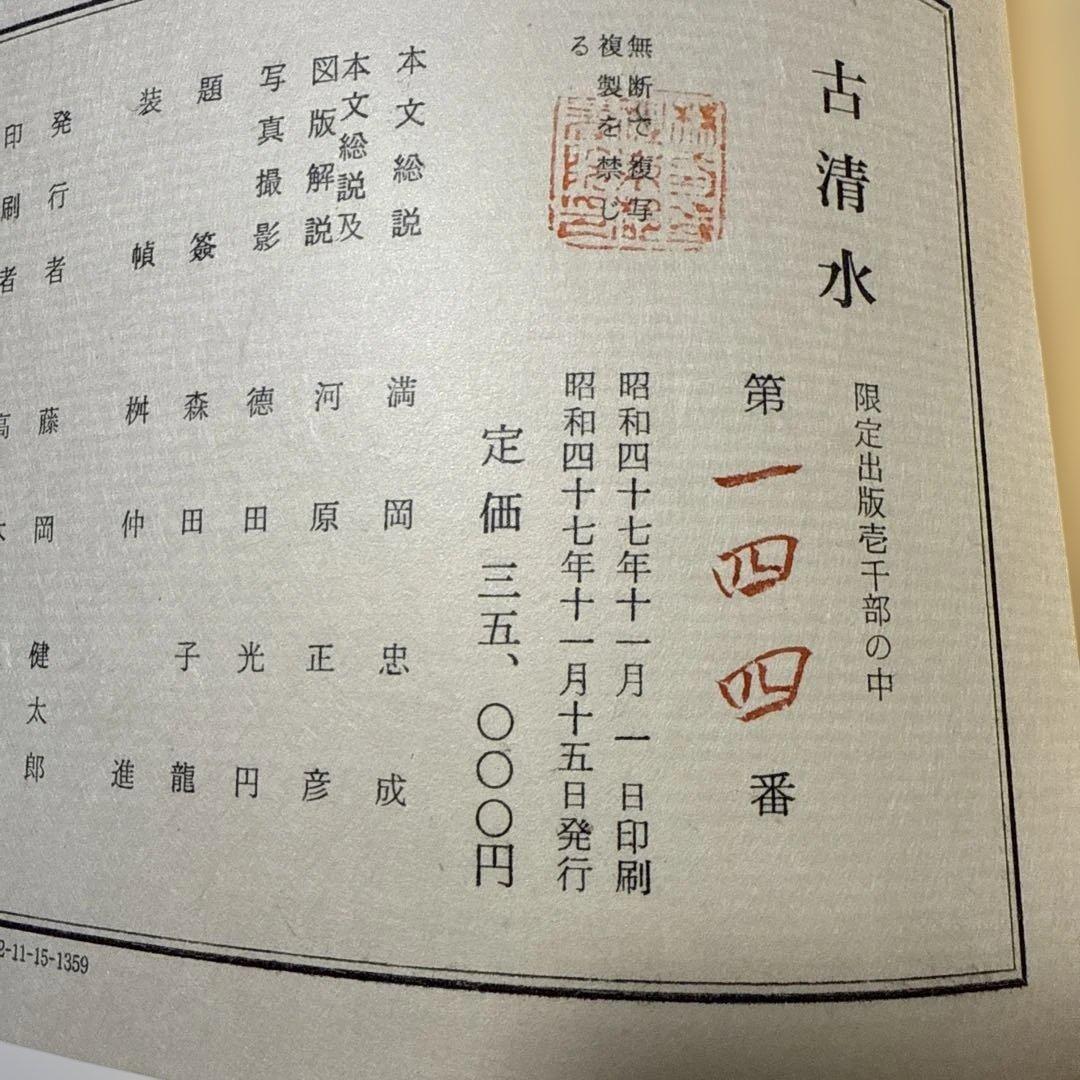 古清水
限定出版壱千部の中
第一四四番
無断で複写
複製を禁じ
る
昭和四十七年十一月一日印刷
昭和四十七年十一月十五日発行
定価 三五、〇〇〇円
本文総説 満岡忠成
本文総説及
図版解説 河原正彦
写真撮影 德田光円
題簽 森田子龍
装幀 桝仲進
発行者 藤岡健太郎
印刷者 高
2-11-15-1359